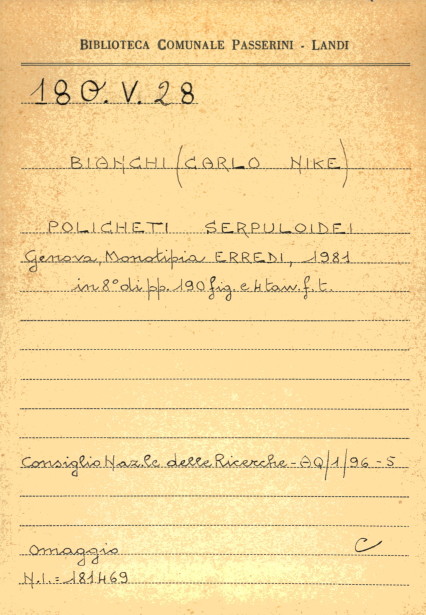 BIBLIOTECA COMUNALE PASSERINI - LANDI
18O.V.28
BIANCHI (CARLO NIKE)
POLICHETI SERPULOIDEI
Genova, Monotipia ERREDI, 1981
in 8° di pp. 190 fig. e 4 tav. f. t.
Consiglio Naz.le delle Ricerche - AQ/1/96 - 5
Omaggio C
N.I. = 181469